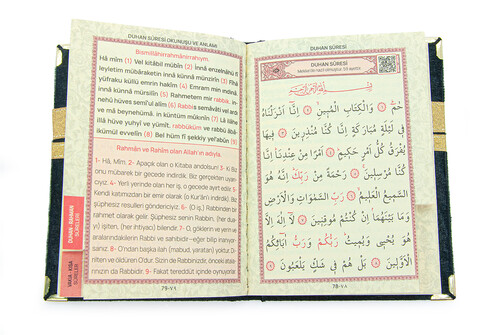 DUHAN SÛRESİ OKUNUŞU VE ANLAMI
Bismillâhirrahmânirrahîym.
Hâ mîm (1) Vel kitâbil mübîn (2) İnnâ enzelnâhü fî
leyletim mübâraketin innâ künnâ münzirîn (3) Fîhâ
yüfraku küllü emrin hakîm (4) Emram min ındinâ
innâ künnâ mürsilîn (5) Rahmetem mir rabbik,
innehû hüves semî'ul alîm (6) Rabbis semâvâti vel ardı
ve mâ beynehümâ, in küntüm mûkınîn (7) Lâ ilâhe
illâ hüve yuhyî ve yümît, rabbüküm ve rabbü âbâ-
ikümül evvelîn (8) Bel hüm fî şekkiy yel'abûn (9)
Rahmân ve Rahîm olan Allah'ın adıyla
1- Hâ, Mîm. 2- Apaçık olan o Kitaba andolsun! 3- Ki Biz
onu mübarek bir gecede indirdik. Biz gerçekten uyarı-
cıyız. 4- Yerli yerinde olan her iş, o gecede ayırt edilir. 5-
Kendi katımızdan bir emir olarak (o Kur'ân'ı indirdik). Biz
şüphesiz resulleri göndericiyiz. 6- O (iş), Rabbinden bir
rahmet olarak gelir. Şüphesiz senin Rabbin, (her du-
ayı) işiten, (her ihtiyacı) bilendir. 7- O, göklerin ve yerin ve
aralarındakilerin Rabbi ve sahibidir-eğer bilip inanır-
sanız. 8- O'ndan başka ilah (mabud, yaratan) yoktur. Di-
rilten ve öldüren O'dur. Sizin de Rabbinizdir, önceki ataları-
nızın da Rabbidir. 9- Fakat tereddüt içinde oynuyorlar.
79-٧٨
DUHAN-RAHMAN
SÛRELERİ
VAKIA-KISA
SÛRELER
DUHAN SÛRESİ
DUHÂN SÛRESİ
Mekke'de nazil olmuştur, 59 ayettir.
بِسْمِ اللّٰهِ الرَّحْمٰنِ الرَّحِيمِ
حٰمٓ ۝ وَالْكِتَابِ الْمُبِينِ ۝ اِنَّٓا اَنْزَلْنَاهُ
فِي لَيْلَةٍ مُبَارَكَةٍ اِنَّا كُنَّا مُنْذِرِينَ ۝ فِيهَا
يُفْرَقُ كُلُّ اَمْرٍ حَكِيمٍ ۝ اَمْرًا مِنْ عِنْدِنَا اِنَّا
كُنَّا مُرْسِلِينَ ۝ رَحْمَةً مِنْ رَبِّكَ اِنَّهُ هُوَ
السَّمِيعُ الْعَلِيمُ ۝ رَبِّ السَّمٰوَاتِ وَالْاَرْضِ
وَمَا بَيْنَهُمَا اِنْ كُنْتُمْ مُوقِنِينَ ۝ لَٓا اِلٰهَ اِلَّا
هُوَ يُحْيِي وَيُمِيتُ رَبُّكُمْ وَرَبُّ اٰبَٓائِكُمُ
الْاَوَّلِينَ ۝ بَلْ هُمْ فِي شَكٍّ يَلْعَبُونَ ۝
78-٧٨